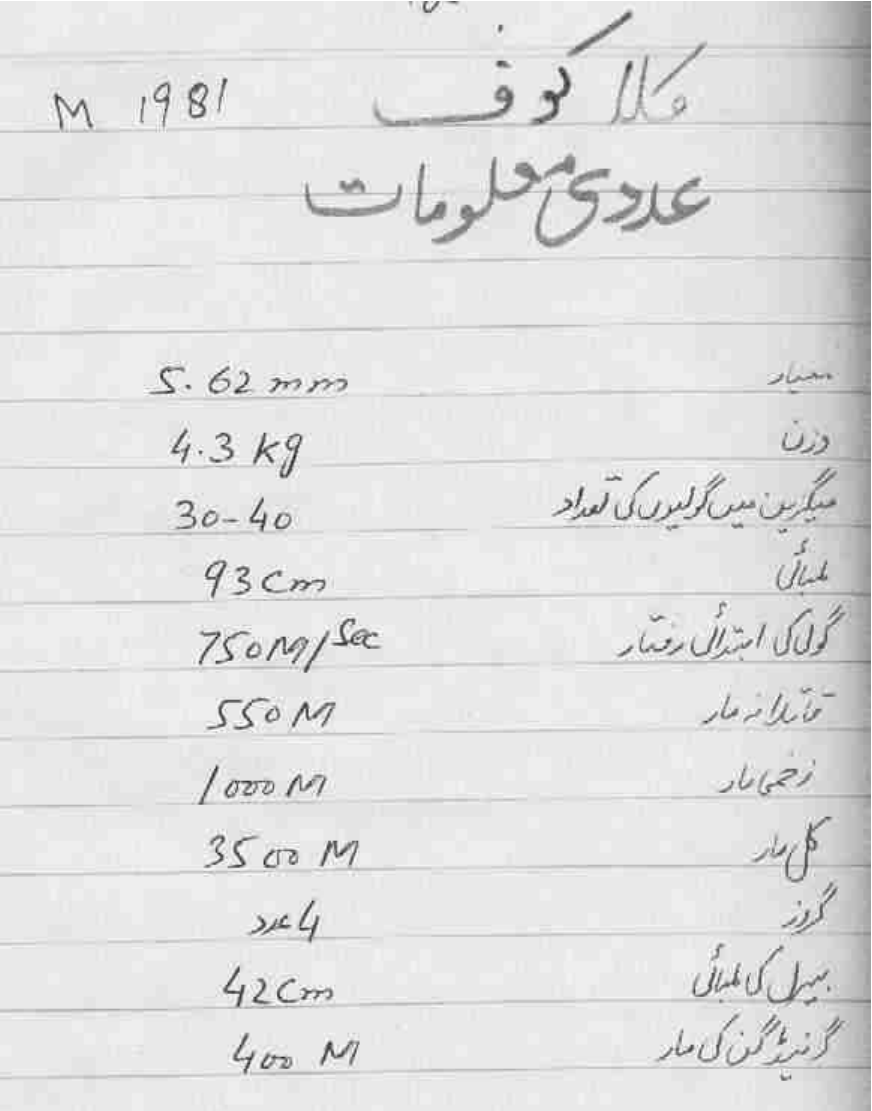 کلاکوف M 1981
عددی معلومات
معیار 5.62 mm
وزن 4.3 kg
میگزین میں گولیوں کی تعداد 30-40
لمبائی 93 Cm
گولی کی ابتدائی رفتار 750 M/Sec
قاتلانہ مار 550 M
زخمی مار 1000 M
کل مار 3500 M
گروز 4 عدد
بیرل کی لمبائی 42 Cm
گرنیڈ گن کی مار 400 M